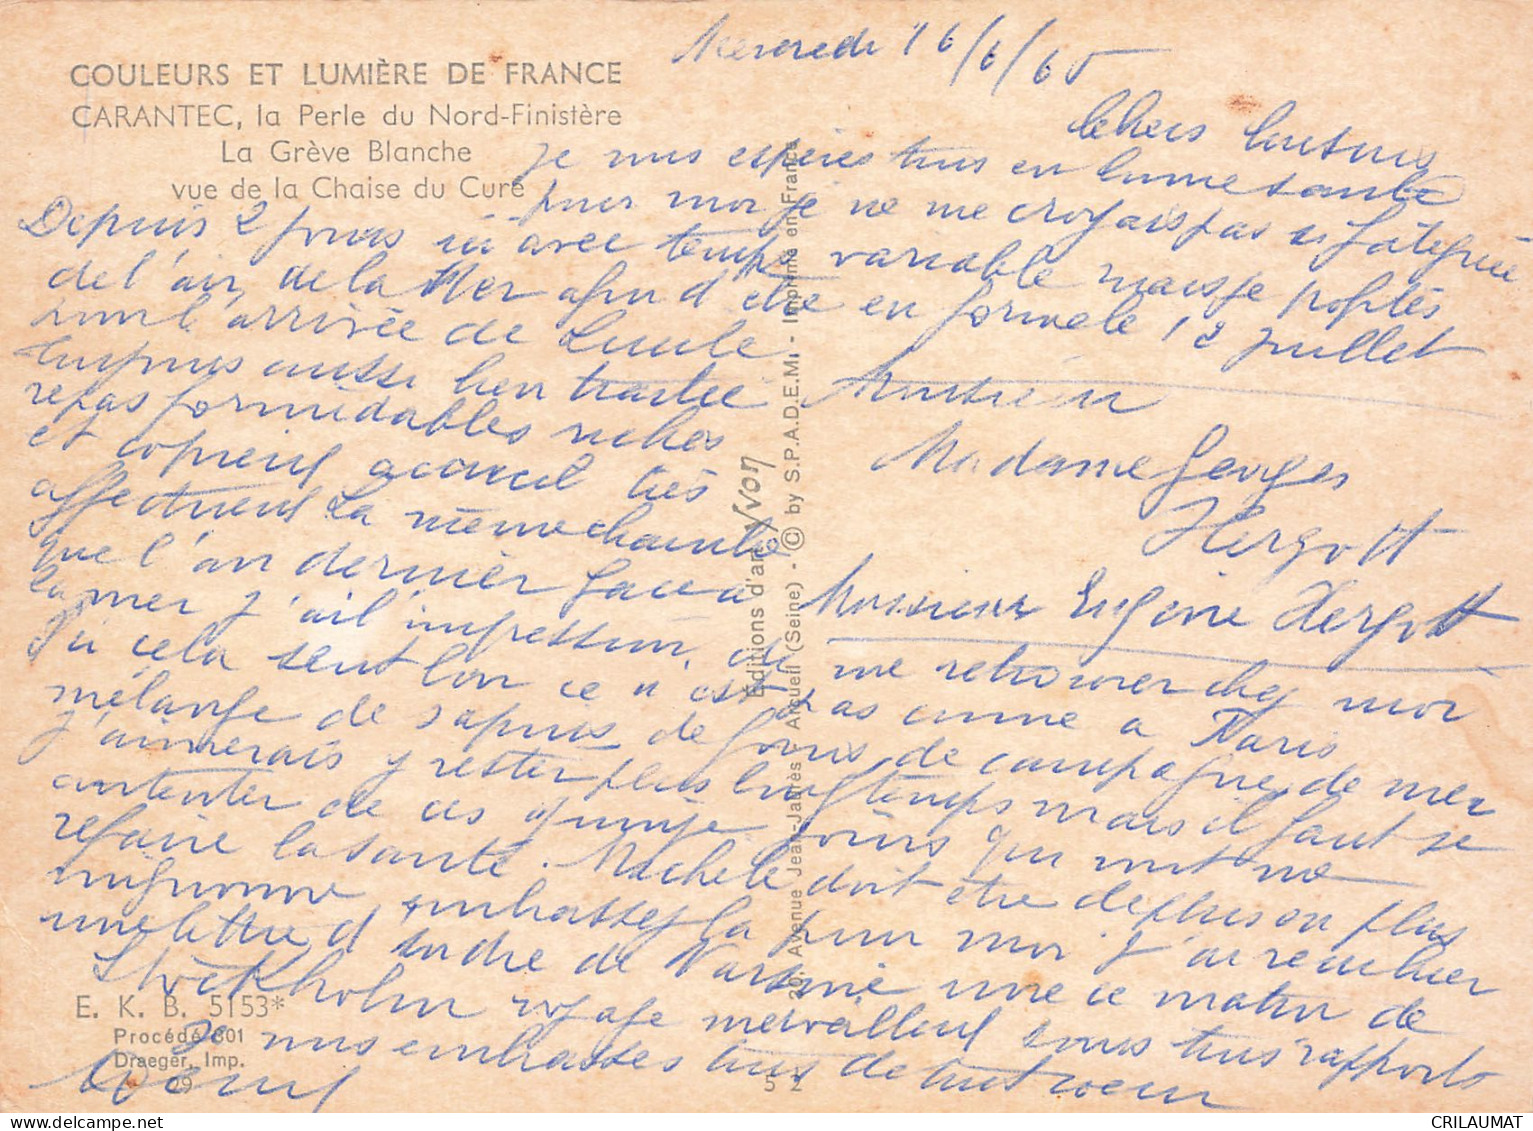 Mercredi 16/6/65
COULEURS ET LUMIÈRE DE FRANCE
CARANTEC, la Perle du Nord-Finistère
La Grève Blanche
vue de la Chaise du Curé
Chers
Je vous espères tous en bonne santé
pour moi je ne me croyais pas si fatiguée
Depuis 2 jours ici avec temps variable mais je profites
de l'air de la Mer afin d'être en forme le 12 juillet
pour l'arrivée de
toujours aussi bien traitée
repas formidables riches
et copieux accueil très
affectueux La même chambre
que l'an dernier face à
la mer j'ai l'impression de me retrouver chez moi
où cela sent bon ce n'est pas comme à Paris
mélange de sapins de foins de campagne, de mer
J'aimerais y rester plus longtemps mais il faut se
contenter de ces quinze jours qui vont me
refaire la santé. Michèle doit être de plus en plus
mignonne embrassez la pour moi J'ai reçu hier
une lettre d'André de Varsovie une ce matin de
Stockholm voyage merveilleux sous tous rapports
Je vous embrasses tous de tout coeur
Monsieur
Madame Georges
Hergott
Monsieur Eugène Hergott
Editions d'art Yvon
20, Avenue Jean-Jaurès - Arcueil (Seine) - © by S.P.A.D.E.M. - Imprimé en France
E. K. B. 5153*
Procédé 301
Draeger, Imp.
29
5 Z
CRILAUMAT